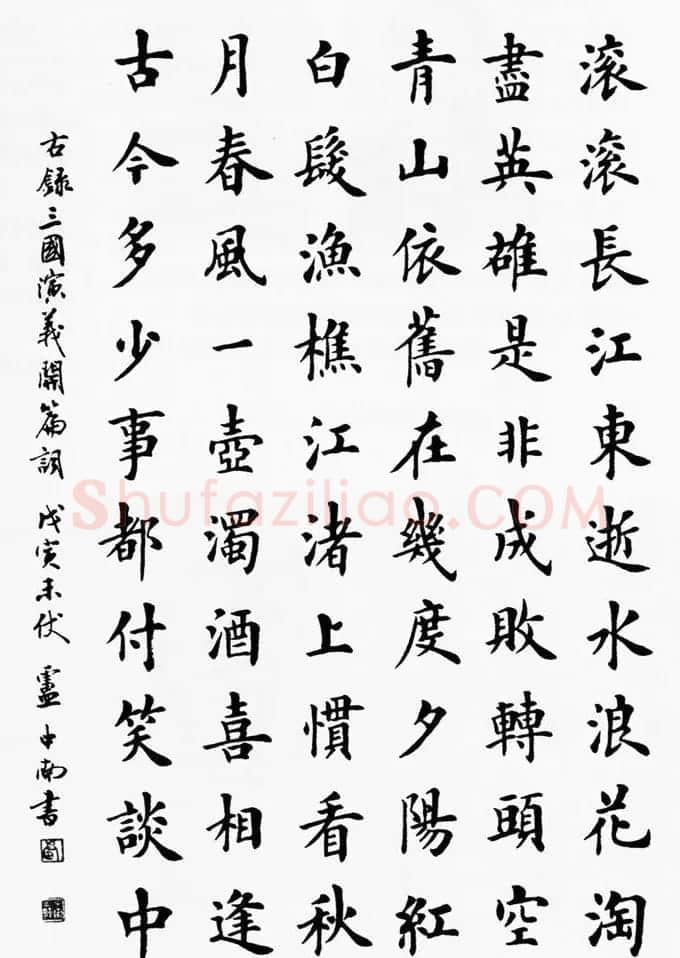 滚滚長江東逝水浪花淘
盡英雄是非成敗轉頭空
青山依舊在幾度夕陽紅
白髮漁樵江渚上慣看秋
月春風一壺濁酒喜相逢
古今多少事都付笑談中
古錄三國演義開篇詞 戊寅末伏 盧中南書
Shufaziliao.COM